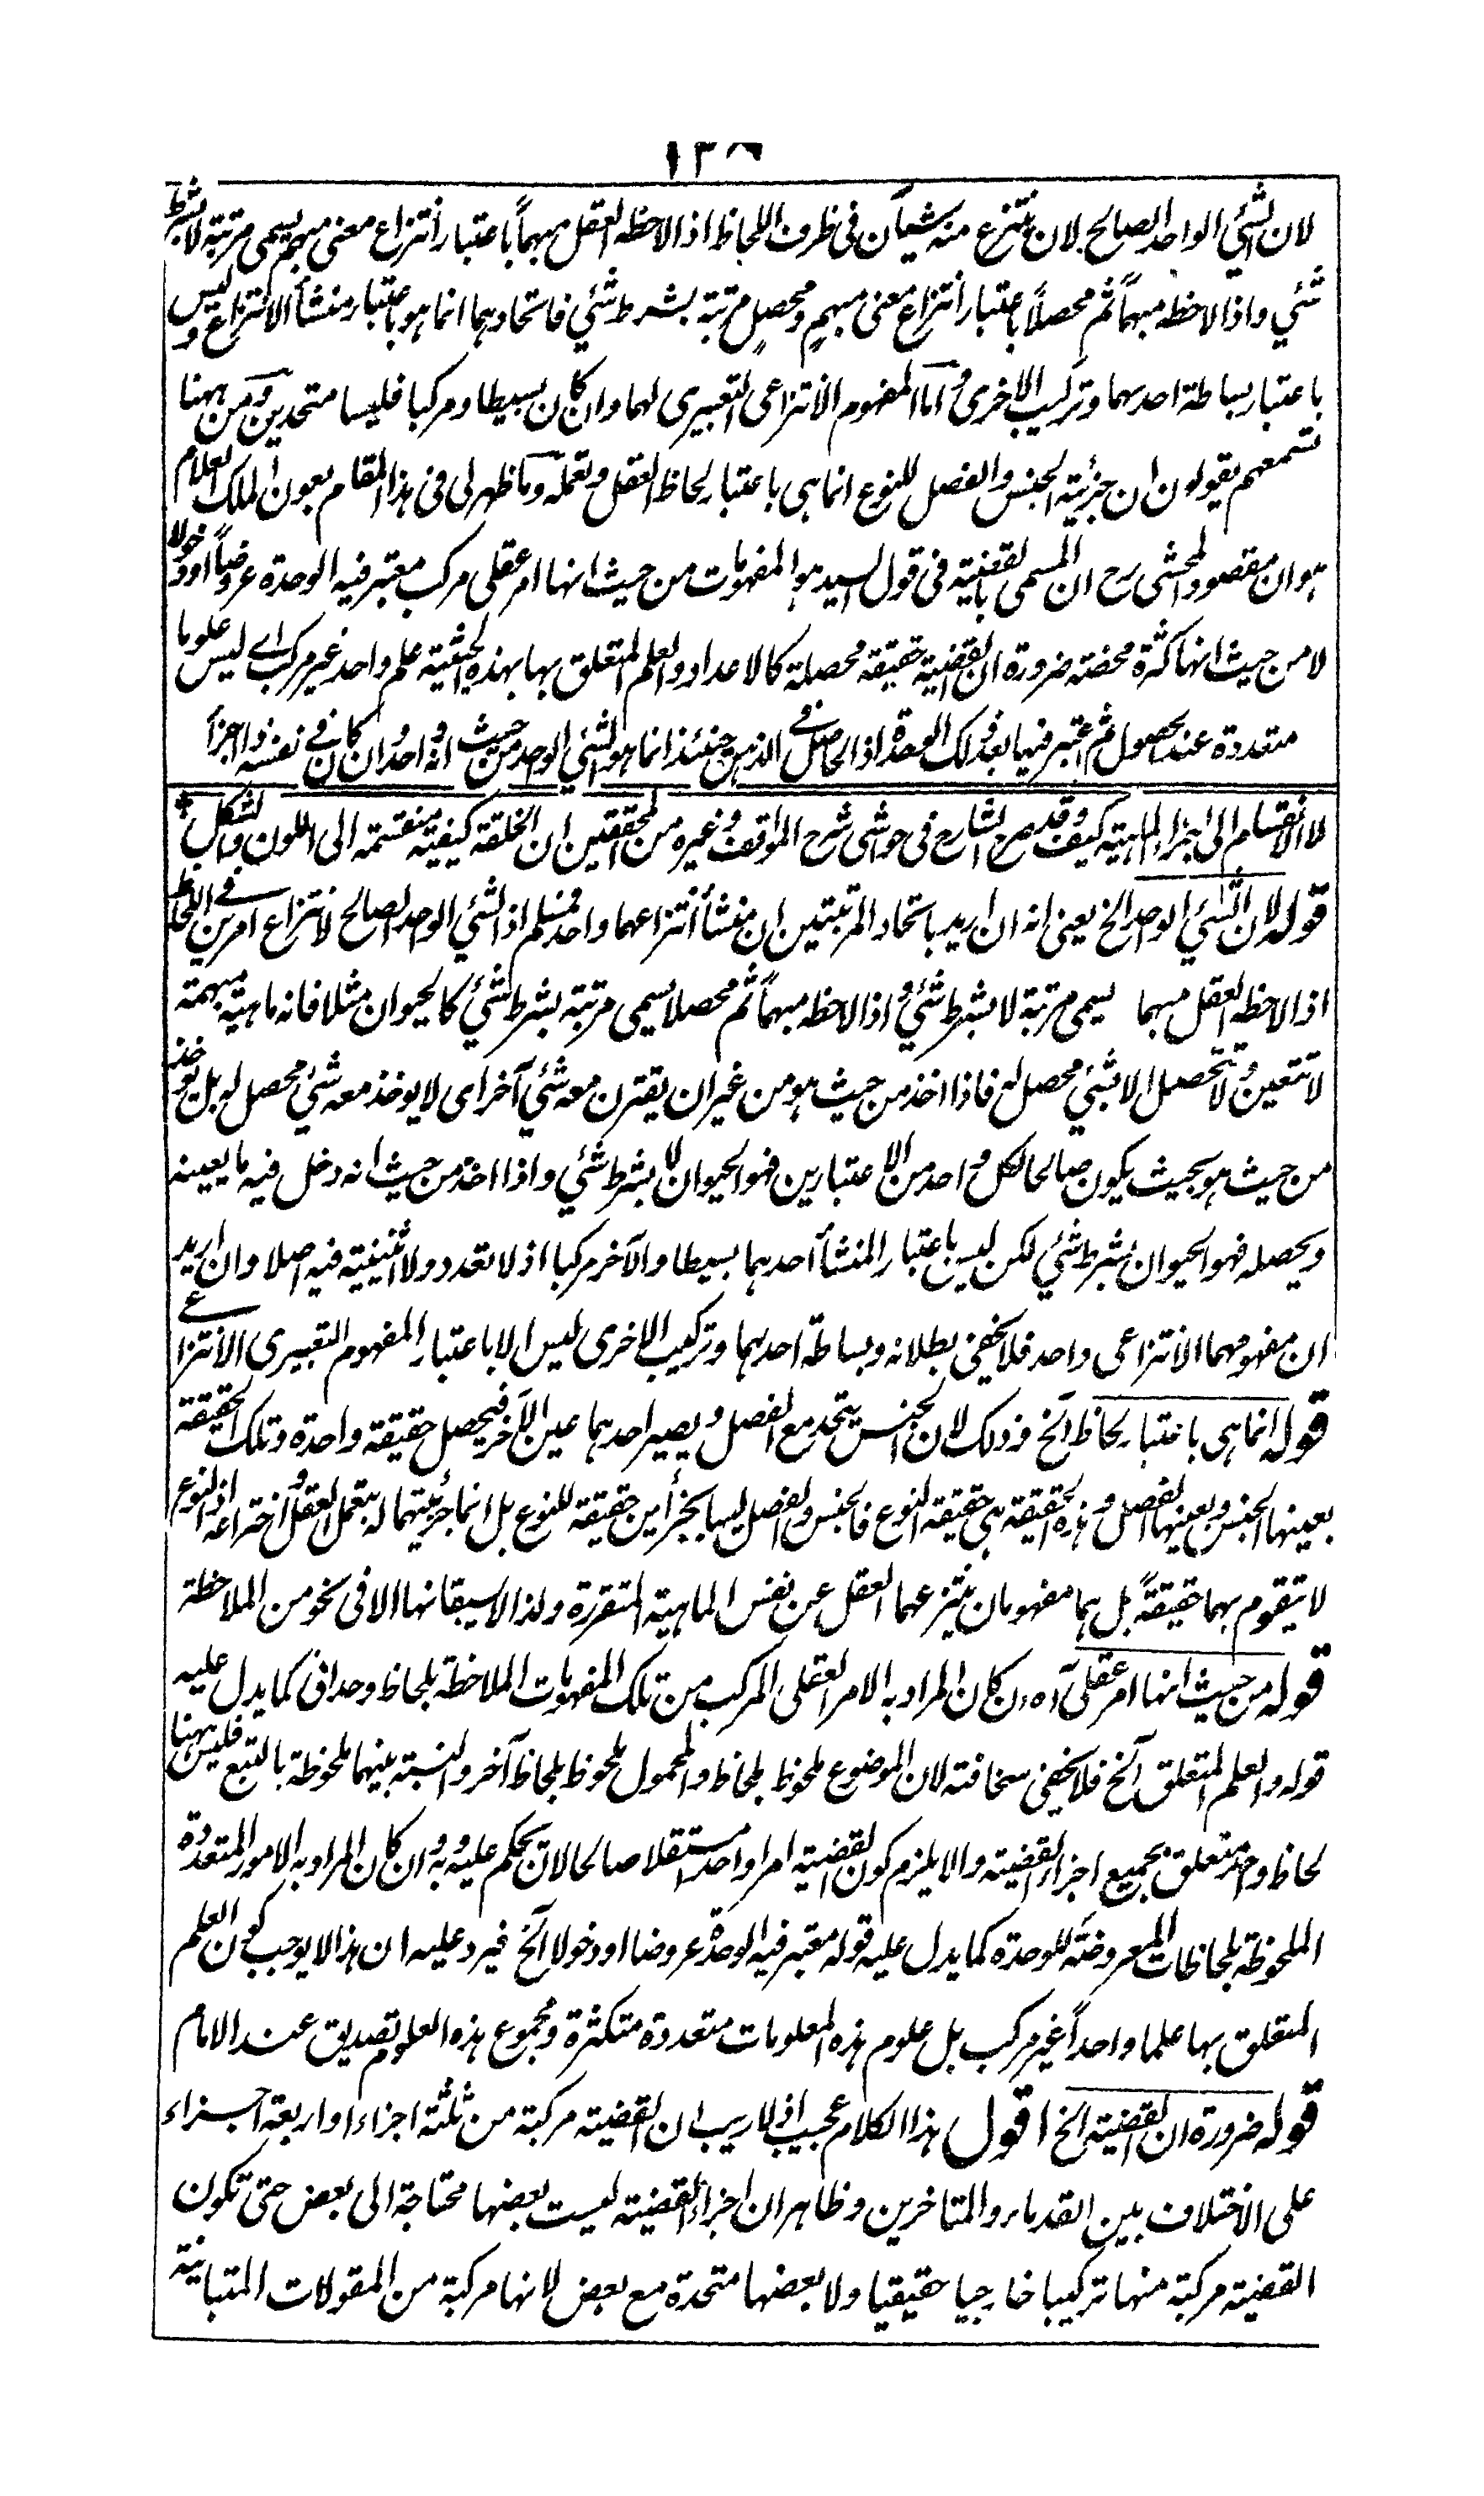 ١٣٨
لان الشئ الواحد الصالح لان ينتزع منه شيئان فى ظرف اللحاظ اذا لاحظه العقل مبهماً باعتبار انتزاع معنى مبهم يسمى مرتبة لا بشرط
شئي واذا لاحظه مبهماً ثم محصلاً باعتبار انتزاع معنى مبهم ومحصل مرتبة بشرط شئي فاتحادهما انما هو باعتبار منشأ الانتزاع وليس
باعتبار بساطة احدهما وتركيب الاخرى واما المفهوم الانتزاعى التعبيرى لهما وان كان بسيطا ومركبا فليسا متحدين ومن ههنا
تسمعهم يقولون ان جزئية الجنس والفصل للنوع انما هى باعتبار لحاظ العقل وتعمله وما ظهر لى فى هذا المقام بعون الملك العلام
هو ان مقصود المحشى رح ان المسمى بالقضية فى قول السيد هو المفهومات من حيث انها امر عقلى مركب معتبر فيه الوحدة عروضاً او دخولا
لا من حيث انها كثرة محضة ضرورة ان القضية حقيقة محصلة كالاعداد والعلم المتعلق بها بهذه الحيثية علم واحد غير مركب اے ليس علوما
متعددة عند الحصول ثم اعتبر فيها بعد ذلك الوحدة اذ الحاصل فى الذهن حينئذ انما هو الشئي الواحد من حيث انه واحد وان كان فى نفسه ذا اجزأ
لا الانقسام الى اجزاء الماهية كيف وقد صرح الشارح فى حواشى شرح المواقف وغيره من المحققين ان الخلقة كيفية منقسمة الى اللون والشكل
قوله لان الشئي الواحد الخ يعنى انه ان اريد باتحاد المرتبتين ان منشأ انتزاعهما واحد فمسلم اذ الشئي الواحد الصالح لانتزاع امرين فى اللحاظ
اذا لاحظه العقل مبهما يسمى مرتبة لا بشرط شئي واذا لاحظه مبهماً ثم محصلا يسمى مرتبة بشرط شئي كالحيوان مثلا فانه ماهية مبهمة
لا تتعين ولا تتحصل الا بشئي محصل له فاذا اخذ من حيث هو من غير ان يقترن معه شئي آخر اى لا يوخذ معه شئي محصل له بل يوخذ
من حيث هو بحيث يكون صالحا لكل واحد من الاعتبارين فهو الحيوان لا بشرط شئي واذا اخذ من حيث انه دخل فيه ما يعينه
ويحصله فهو الحيوان بشرط شئي لكن ليس باعتبار المنشأ احدهما بسيطا والآخر مركبا اذ لا تعدد ولا اثنينية فيه اصلا وان اريد
ان مفهومهما الانتزاعى واحد فلا يخفى بطلانه وبساطة احدهما وتركيب الاخرى ليس الا باعتبار المفهوم التعبيرى الانتزاعے
قوله انما هى باعتبار لحاظ الخ وذلك لان الجنس يتحد مع الفصل ويصير احدهما عين الآخر فيحصل حقيقة واحدة وتلك الحقيقة
بعينها الجنس وبعينها الفصل وهذه الحقيقة هى حقيقة النوع فالجنس والفصل ليسا بجزأين حقيقة للنوع بل انما جزئيتهما له بتعمل العقل واختراعه اذ النوع
لا يتقوم بهما حقيقةً بل هما مفهومان ينتزعهما العقل عن نفس الماهية المتقررة ولذا لا يسبقانها الا فى نحو من الملاحظة
قوله من حيث انها امر عقلى آه ان كان المراد به الامر العقلى المركب من تلك المفهومات الملاحظة بلحاظ وحدانى كما يدل عليه
قوله والعلم المتعلق الخ فلا يخفى سخافته لان الموضوع ملحوظ بلحاظ والمحمول ملحوظ بلحاظ آخر والنسبة بينهما ملحوظة بالتبع فليس ههنا
لحاظ واحد متعلق بجميع اجزاء القضية والا يلزم كون القضية امرا واحدا مستقلا صالحا لان يحكم عليه وبه وان كان المراد به الامور المتعددة
الملحوظة بلحاظات المعروضة للوحدة كما يدل عليه قوله معتبر فيه الوحدة عروضا او دخولا الخ فيرد عليه ان هذا لا يوجب كون العلم
المتعلق بها علما واحداً غير مركب بل علوم هذه المعلومات متعددة متكثرة ومجموع هذه العلوم تصديق عند الامام
قوله ضرورة ان القضية الخ اقول هذا الكلام عجيب اذ لا ريب ان القضية مركبة من ثلثة اجزاء او اربعة اجزاء
على الاختلاف بين القدماء والمتاخرين وظاهر ان اجزاء القضية ليست بعضها محتاجة الى بعض حتى تكون
القضية مركبة منها تركيبا خارجيا حقيقيا ولا بعضها متحدة مع بعض لانها مركبة من المقولات المتباينة